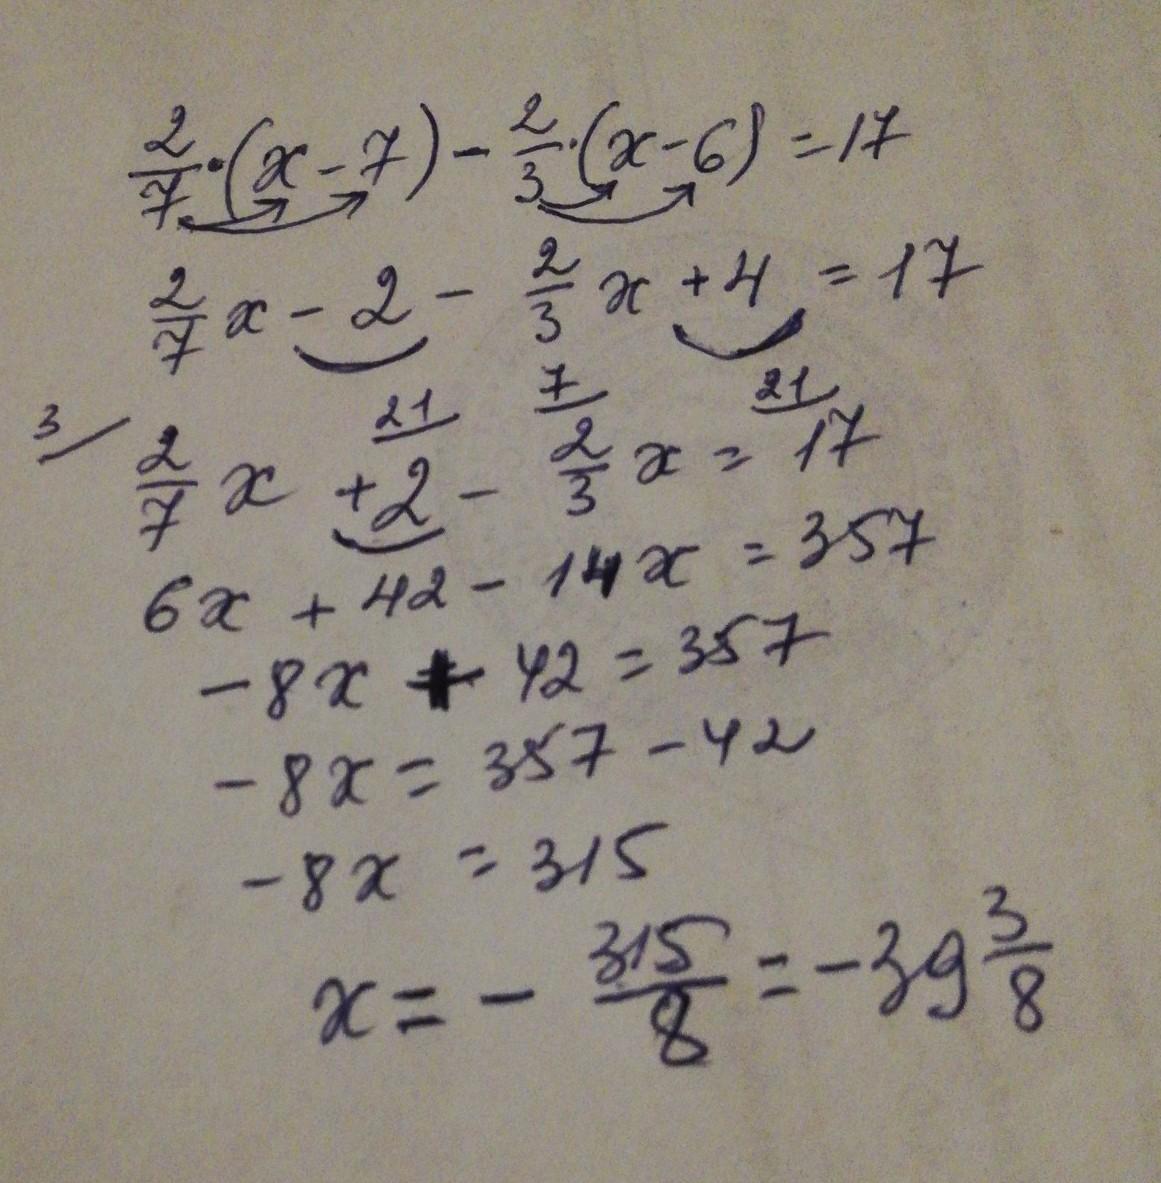 2/7 · (x - 7) - 2/3 · (x - 6) = 17
2/7 x - 2 - 2/3 x + 4 = 17
3/ 2/7 x 21/ + 2 - 7/ 2/3 x = 21/ 17
6x + 42 - 14x = 357
-8x + 42 = 357
-8x = 357 - 42
-8x = 315
x = - 315/8 = -39 3/8